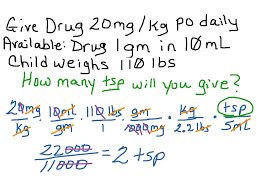 Give Drug 20mg/kg po daily
Available: Drug 1gm in 10mL
Child weighs 110 lbs
How many tsp will you give?
20mg/kg · 10mL/gm · 110 lbs/1 · gm/1000mg · kg/2.2 lbs · tsp/5mL
22000/11000 = 2 tsp